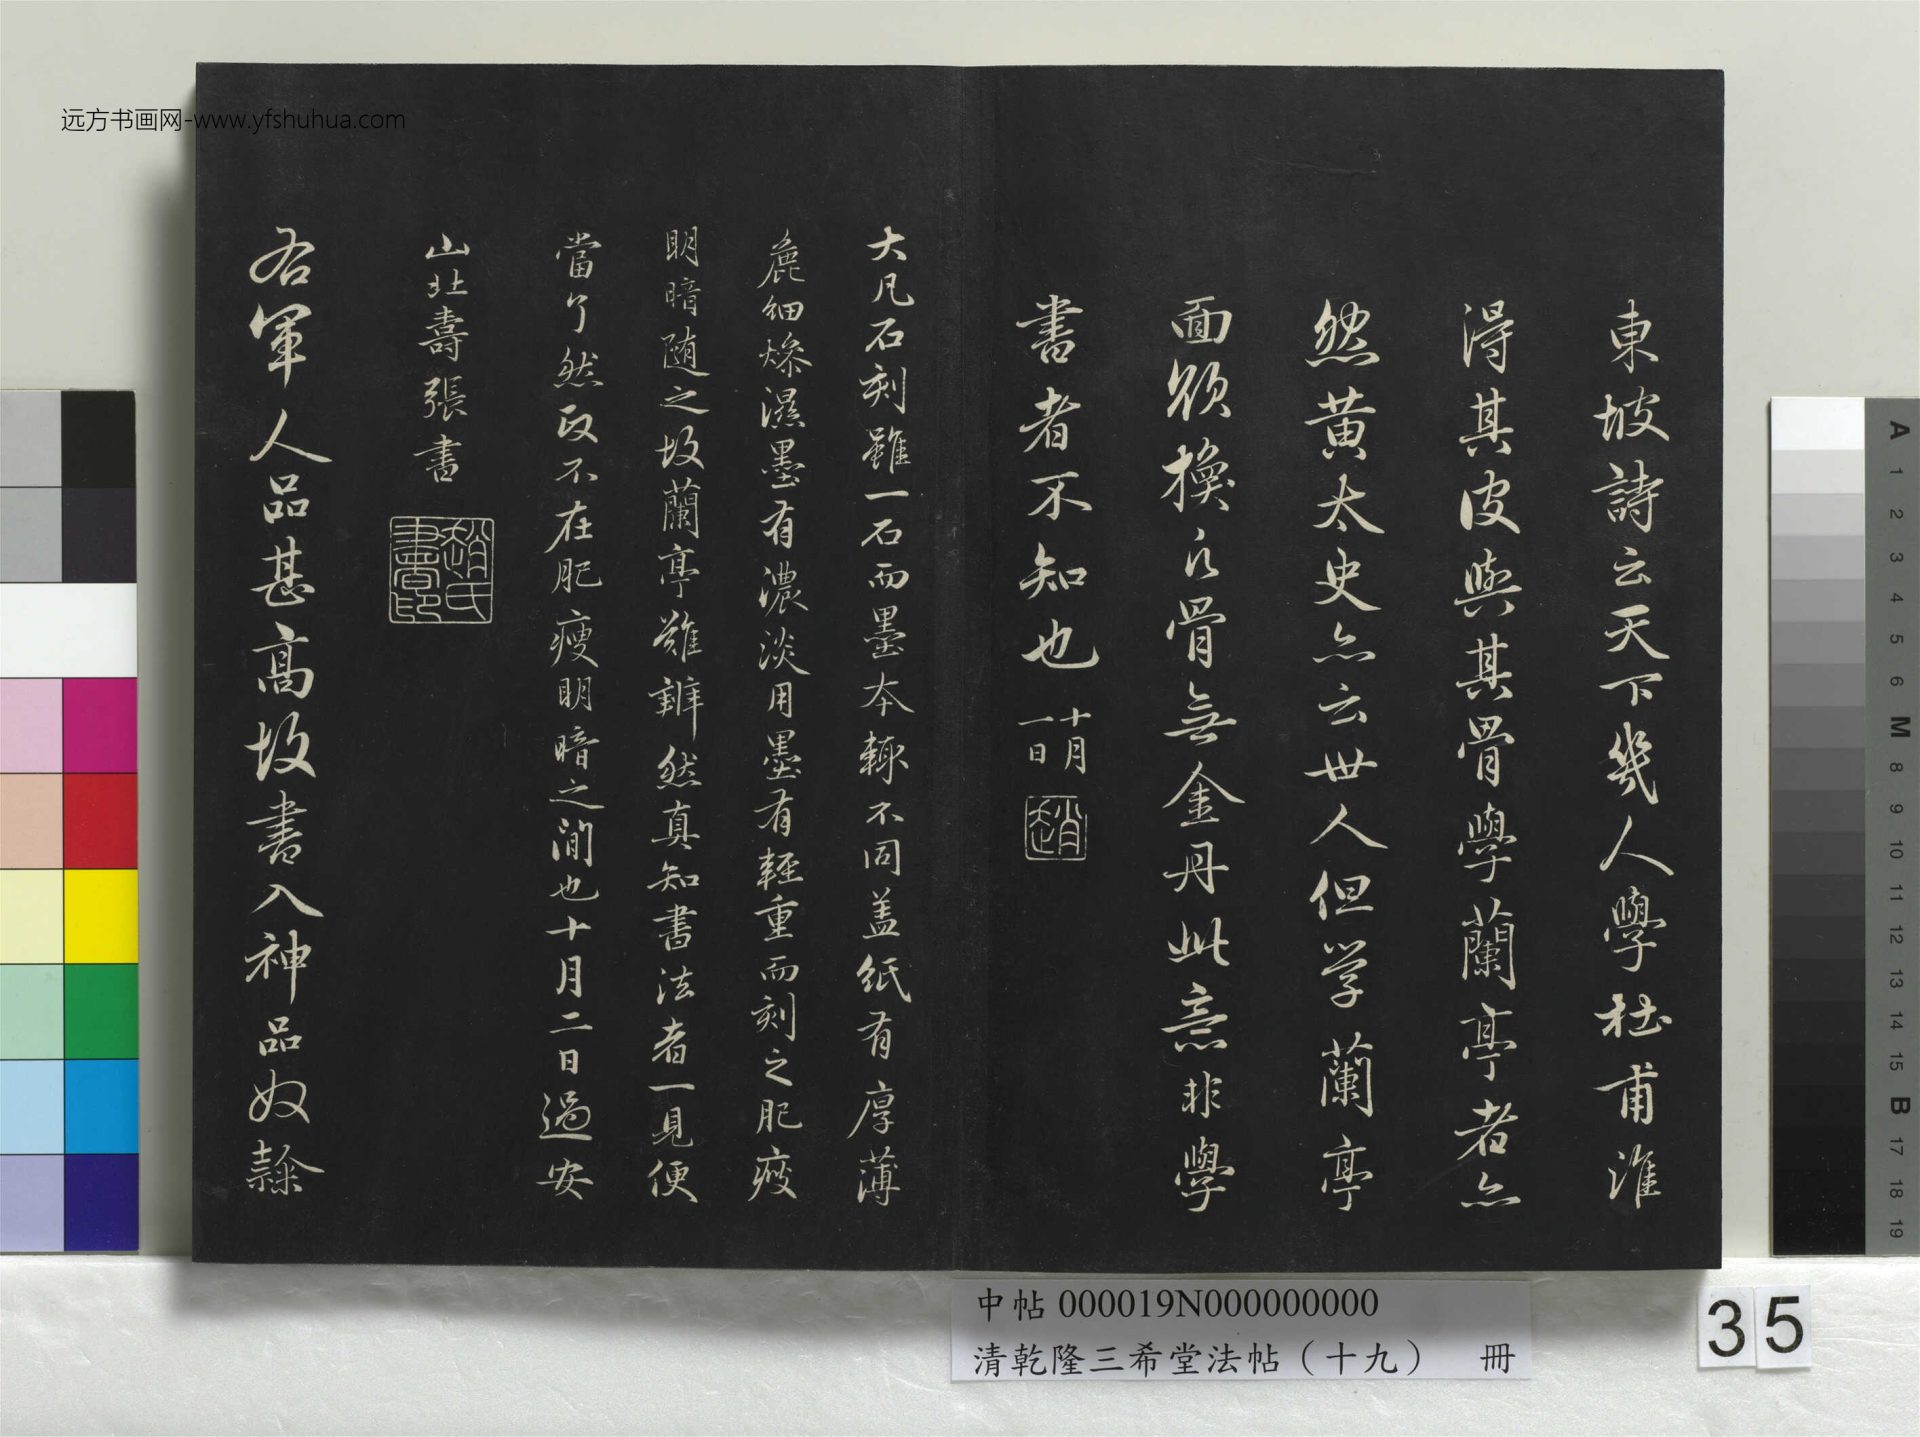 東坡詩云天下幾人學杜甫誰
得其皮與其骨學蘭亭者亦
然黃太史亦云世人但学蘭亭
面欲換凡骨無金丹此意非學
書者不知也十月
一日
趙
大凡石刻雖一石而墨本輙不同盖紙有厚薄
麁細燥濕墨有濃淡用墨有輕重而刻之肥瘦
明暗随之故蘭亭難辨然真知書法者一見便
當了然政不在肥瘦明暗之間也十月二日過安
山北壽張書
趙氏書印
右軍人品甚高故書入神品奴隸
远方书画网-www.yfshuhua.com
中帖 000019N000000000
清乾隆三希堂法帖（十九） 冊
35
A 1 2 3 4 5 6 M 8 9 10 11 12 13 14 15 B 17 18 19